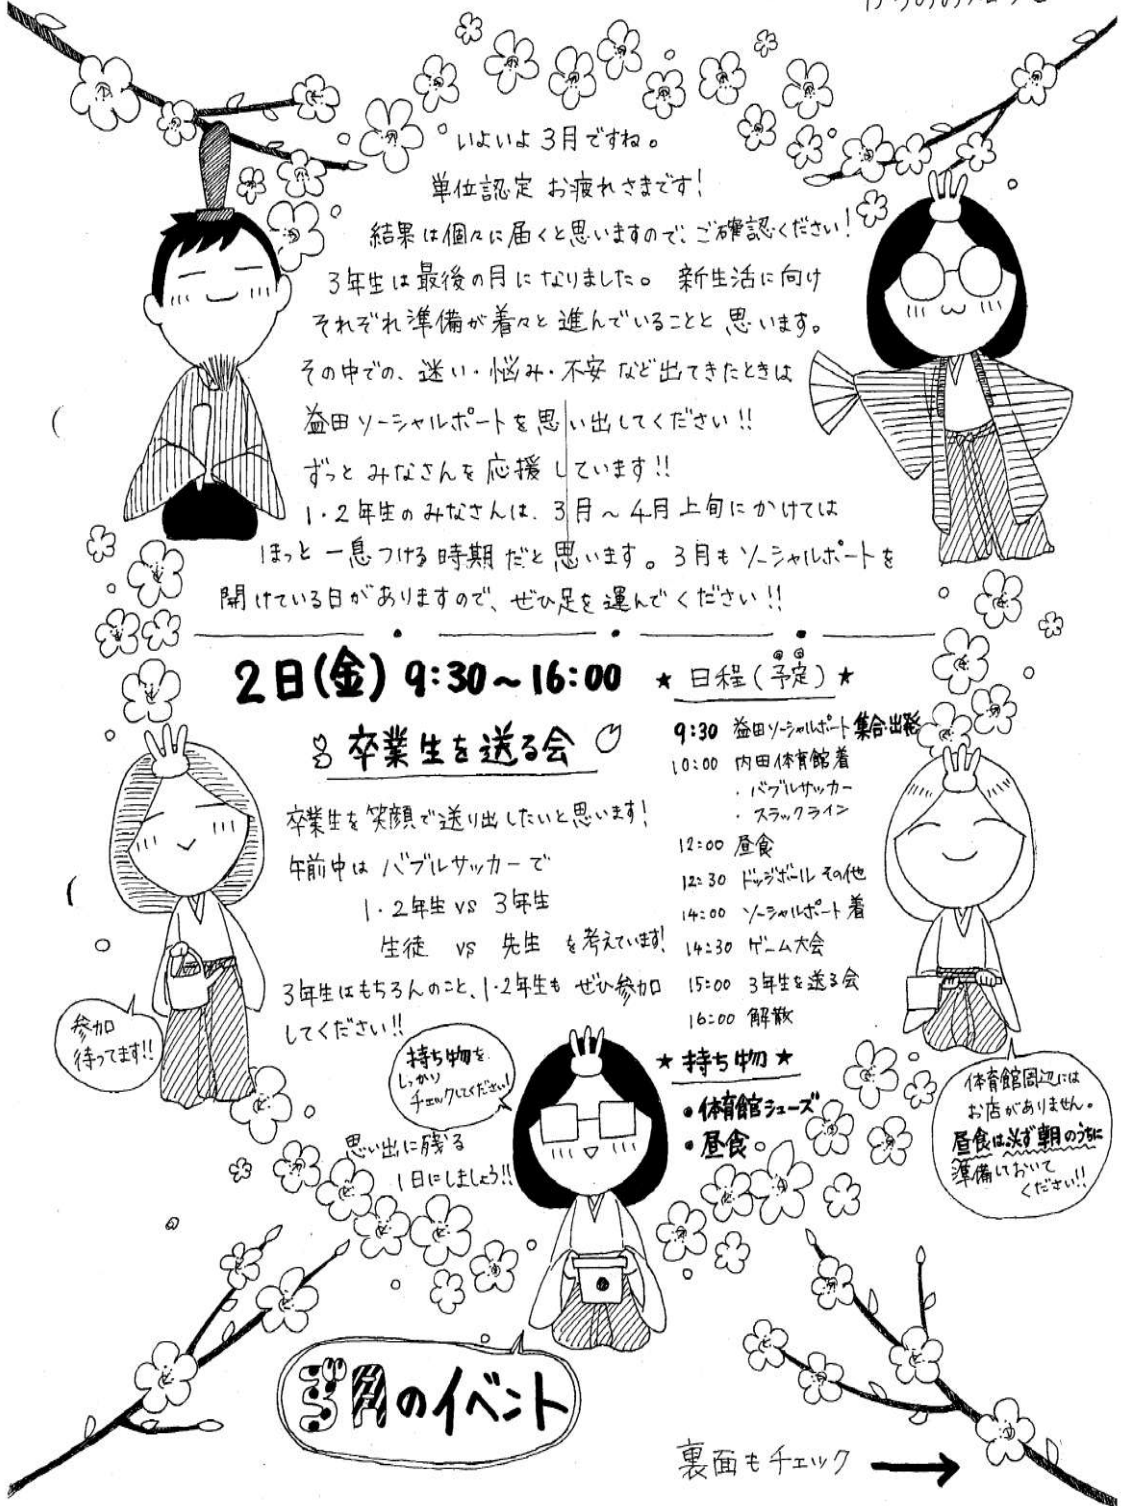 いよいよ3月ですね。
単位認定 お疲れさまです!
結果は個々に届くと思いますので、ご確認ください!
3年生は最後の月になりました。 新生活に向け
それぞれ準備が着々と進んでいることと思います。
その中での、迷い・悩み・不安など出てきたときは
益田ソーシャルポートを思い出してください!!
ずっとみなさんを応援しています!!
1・2年生のみなさんは、3月〜4月上旬にかけては
ほっと一息つける時期だと思います。3月もソーシャルポートを
開けている日がありますので、ぜひ足を運んでください!!
2日(金) 9:30〜16:00
卒業生を送る会
卒業生を笑顔で送り出したいと思います!
午前中はバブルサッカーで
1・2年生 vs 3年生
生徒 vs 先生 を考えています!
3年生はもちろんのこと、1・2年生も ぜひ参加
してください!!
★ 日程(予定) ★
9:30 益田ソーシャルポート集合出発
10:00 内田体育館着
・バブルサッカー
・スラックライン
12:00 昼食
12:30 ドッジボール その他
14:00 ソーシャルポート着
14:30 ゲーム大会
15:00 3年生を送る会
16:00 解散
★ 持ち物 ★
・体育館シューズ
・昼食
参加
待ってます!!
持ち物を
しっかり
チェックしてください!
思い出に残る
1日にしましょう!!
体育館周辺には
お店がありません。
昼食は必ず朝のうちに
準備しておいて
ください!!
3月のイベント
裏面もチェック →